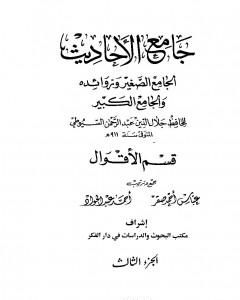 جامع الأحاديث
الجامع الصغير وزوائده
والجامع الكبير
للحافظ جلال الدين عبد الرحمن السيوطي
المتوفى سنة ٩١١هـ
قسم الأقوال
جمع وترتيب
عباس أحمد صقر أحمد عبد الجواد
إشراف
مكتب البحوث والدراسات في دار الفكر
الجزء الثالث